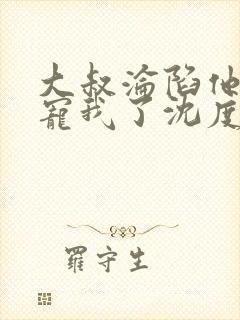 大叔淪陷他
寵我了沈厐
羅守生